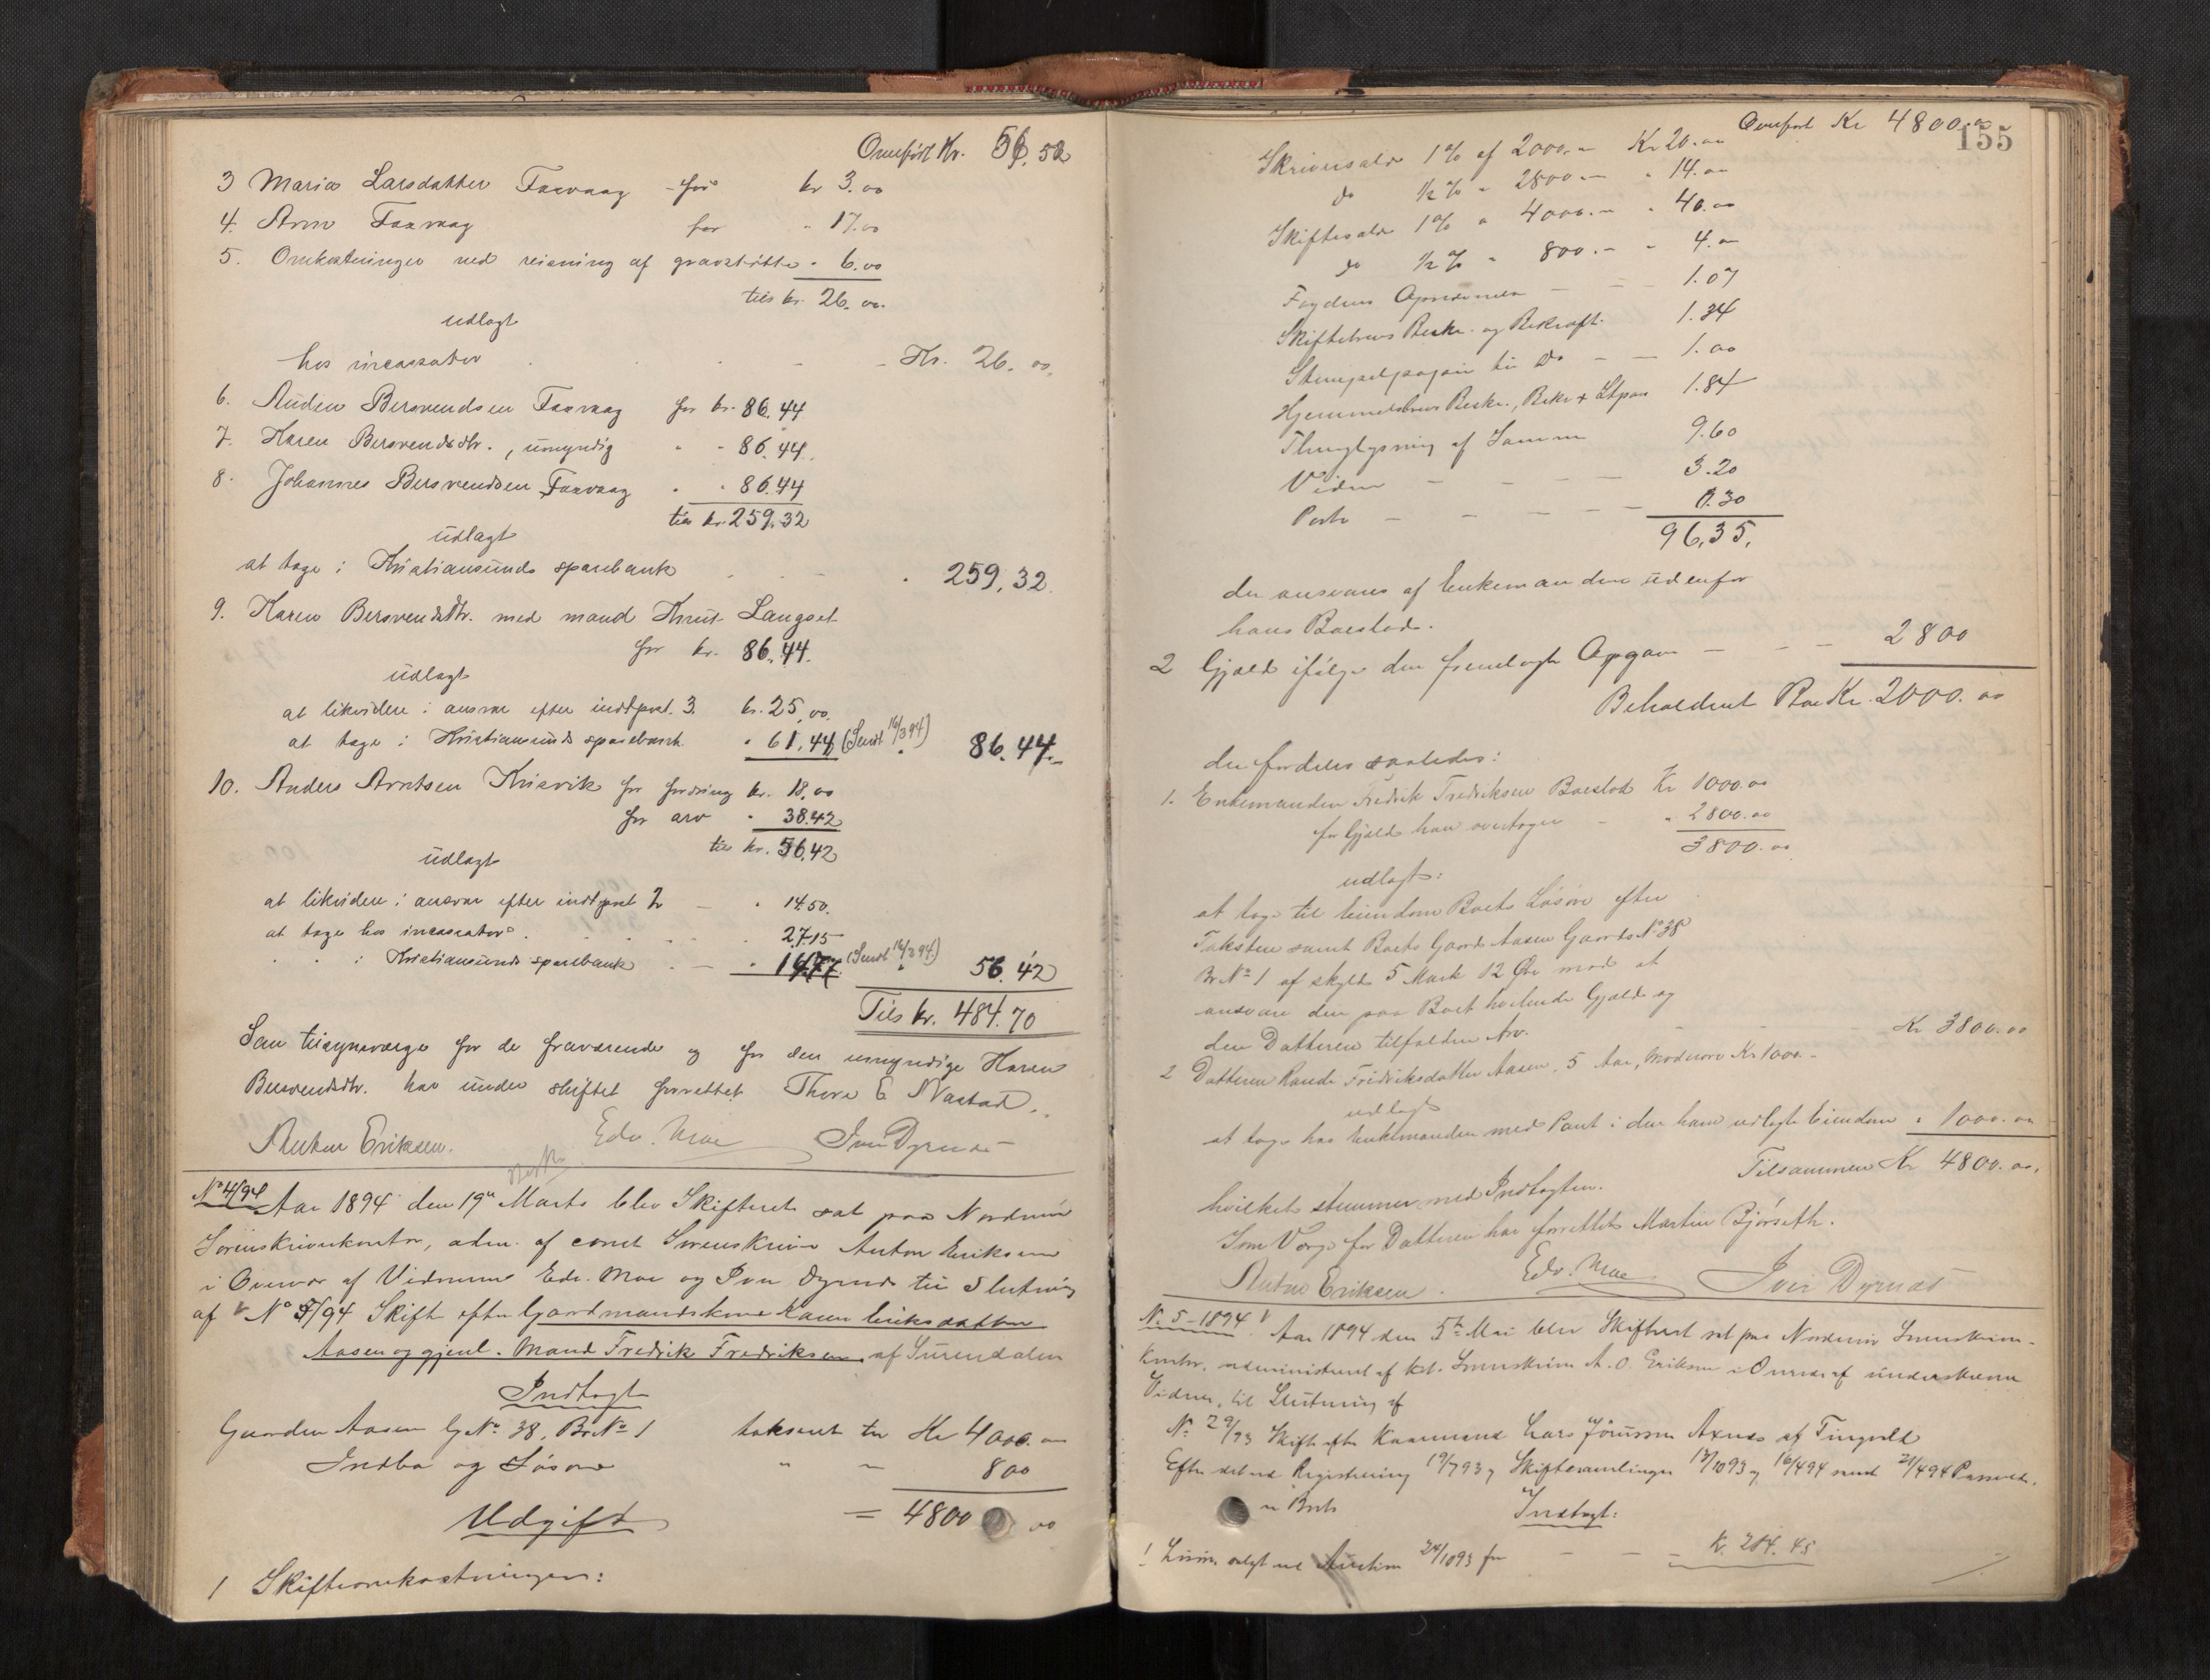 Overført Kr. 56.52
3 Maria Larsdatter Faxvaag for kr 3.00
4. Arn Faxvaag for " 17.00
5. Omkostninger ved reisning af gravstøtte " 6.00
tils kr. 26.00
udlagt
hos incassator - - Kr. 26.00
6. Auden Bersvendsen Faxvaag for kr. 86.44
7. Karen Bersvendsdtr., umyndig " " 86.44
8. Johannes Bersvendsen Faxvaag " " 86.44
tils kr. 259.32
udlagt
at tage i Kristiansunds sparebank " 259.32
9. Karen Bersvendsdtr. med mand Knut Langset
for kr. 86.44.
udlagt
at likvidere i ansvar efter indtpost. 3. kr. 25.00
at tage i Kristiansunds sparebank " 61.44 (Sendt 16/3 94) 86.44
10. Anders Arntsen Kvisvik for fordring kr. 18.00
for arv " 38.42
tils kr. 56.42
udlagt
at likvidere i ansvar efter indtpost 2 - " 14.50.
at tage hos incassator " 27.15
" " i Kristiansunds sparebank - " 14.77 (Sendt 16/3 94.) 56.42
Tils kr. 484.70
Som tilsynsværge for de fraværende og for den umyndige Karen
Bersvendsdtr. har under skiftet forrettet Thore E Nastad.
Anton Eriksen. Edv. Moe Iver Dyrnes
No 4/94 Aar 1894 den 19de Marts blev Skifteret sat paa Nordmør
Sorenskriverkontor, adm. af const Sorenskriver Anton Eriksen
i Overvær af Vidnerne Edv. Moe og Iver Dyrnes til Slutning
af No 5/94 Skifte efter Gaardmandskone Karen Eriksdatter
Aasen og gjenl. Mand Fredrik Fredriksen af Surendalen
Indtægt
Gaarden Aasen G.No. 38, Br.No 1 taksert til Kr 4000.00
Indbo og Løsøre " - 800
Udgift = 4800 00
1 Skifteomkostninger:
155
Overført Kr 4800.00
Skriversalær 1% af 2000.- Kr 20.00
do ½% " 2800.- " 14.00
Skiftesalær 1% " 4000.- " 40.00
do ½% " 800.- - 4.00
Fogdens - - 1.07
Skiftebrevs Beskr. og Bekræft. 1.34
Stempelpapir til do - - 1.00
Hjemmelsbrevs Beskr., Bekr + Stpap 1.84
Thinglysning af Samme 9.60
Vidner - - - - 3.20
Porto - - - - - 0.30
96.35.
der ansvares af Enkemanden udenfor
hans Boeslod.
2 Gjæld ifølge den fremlagte Opgave - - - 2800
Beholdent Bo Kr. 2000.00
der fordeles saaledes:
1. Enkemanden Fredrik Fredriksen Boeslod Kr 1000.00
for Gjæld han overtager - " 2800.00
3800.00
udlagt:
at tage til Eiendom Boets Løsøre efter
Taksten samt Boets Gaard Aasen Gaards No 38
Br.No 1 af skyld 5 Mark 12 Øre mod at
ansvare den paa Boet hvilende Gjæld og
den Datteren tilfaldne Arv. - - - Kr 3800.00
2 Datteren Randi Fredriksdatter Aasen, 5 Aar, Modrearv Kr 1000.-
udlagt
at tage hos Enkemanden med Pant i den ham udlagte Eiendom " 1000.00
Tilsammen Kr 4800.00.
hvilket stemmer med Indtægten.
Som Værge for Datteren har forrettet Martin Bjørseth.
Anton Eriksen. Edv. Moe Iver Dyrnes
No. 5-1894 Aar 1894 den 5te Mai blev Skifteret sat paa Nordmør Sorenskriver-
kontor, administreret af kst. Sorenskriver A. O. Eriksen i Overvær af underskrevne
Vidner, til Slutning af
No. 29/93 Skifte efter Kaarmand Lars Axnes af Tingvold
Efter Registrering 19/7 93, Skiftesamlinger 13/10 93 og 16/4 94 samt 21/4 94
Boets
Indtægt:
1 Løsøre solgt ved Auktion 24/10 93 for - - - K. 284.45